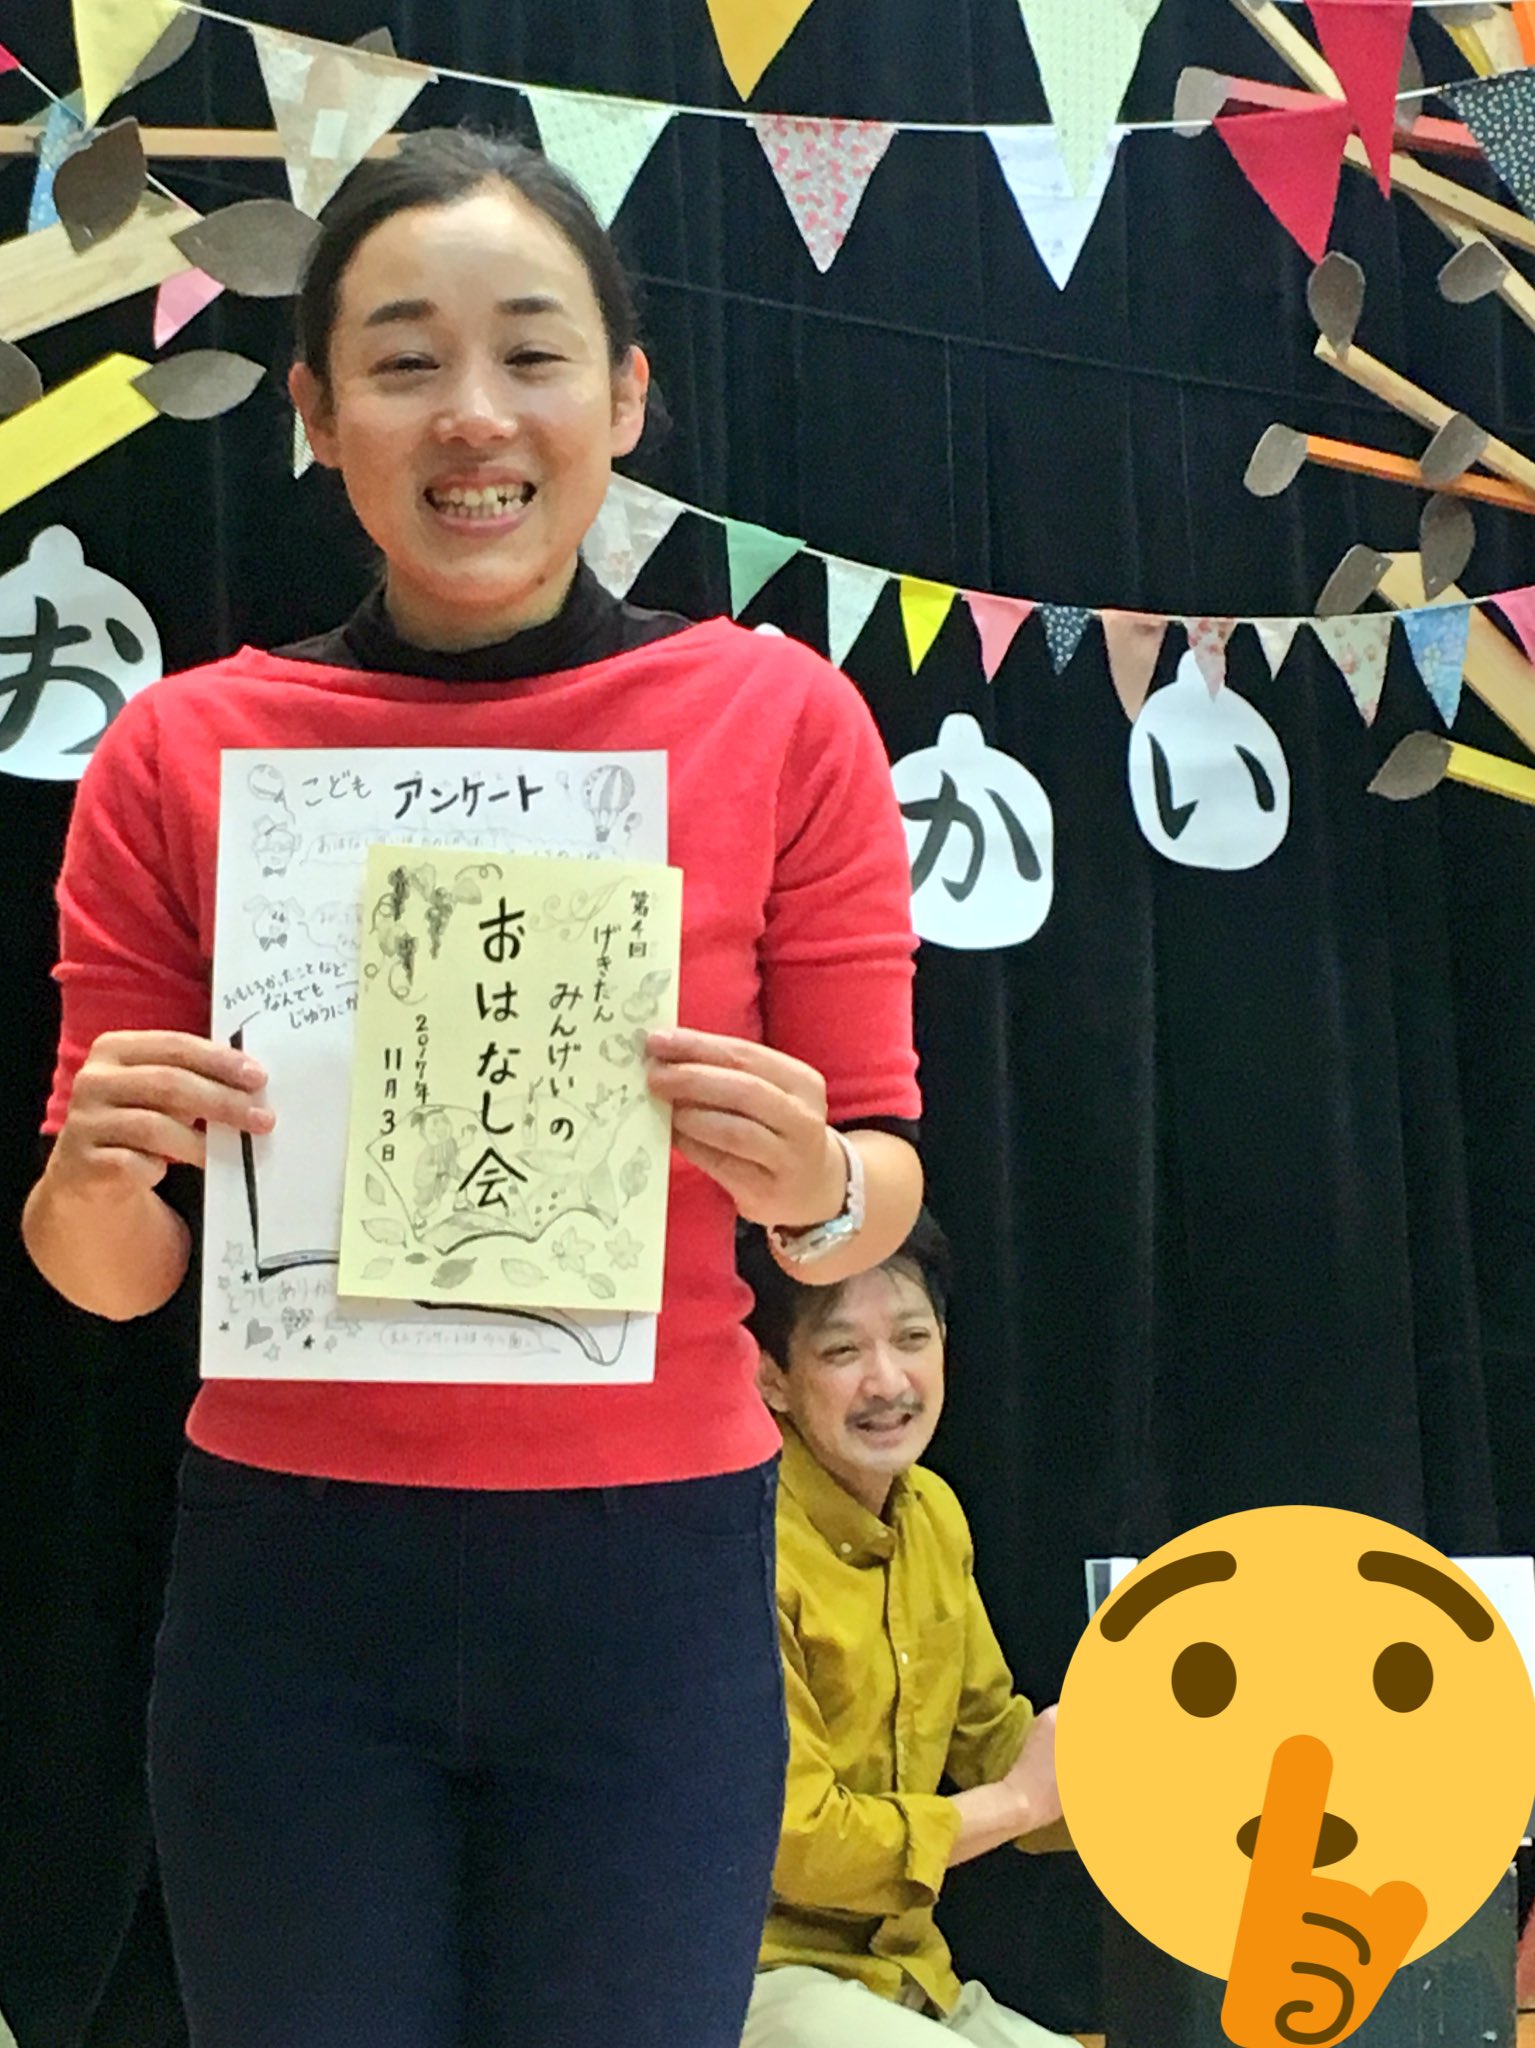 お
か
い
こども アンケート
おもしろかったことなど
なんでも
じゆうにか
第4回
げきだん
みんげいの
おはなし会
2017年
11月3日